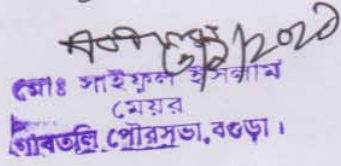 মোঃ সাইফুল ইসলাম
মেয়র
গাবতলি পৌরসভা, বগুড়া।